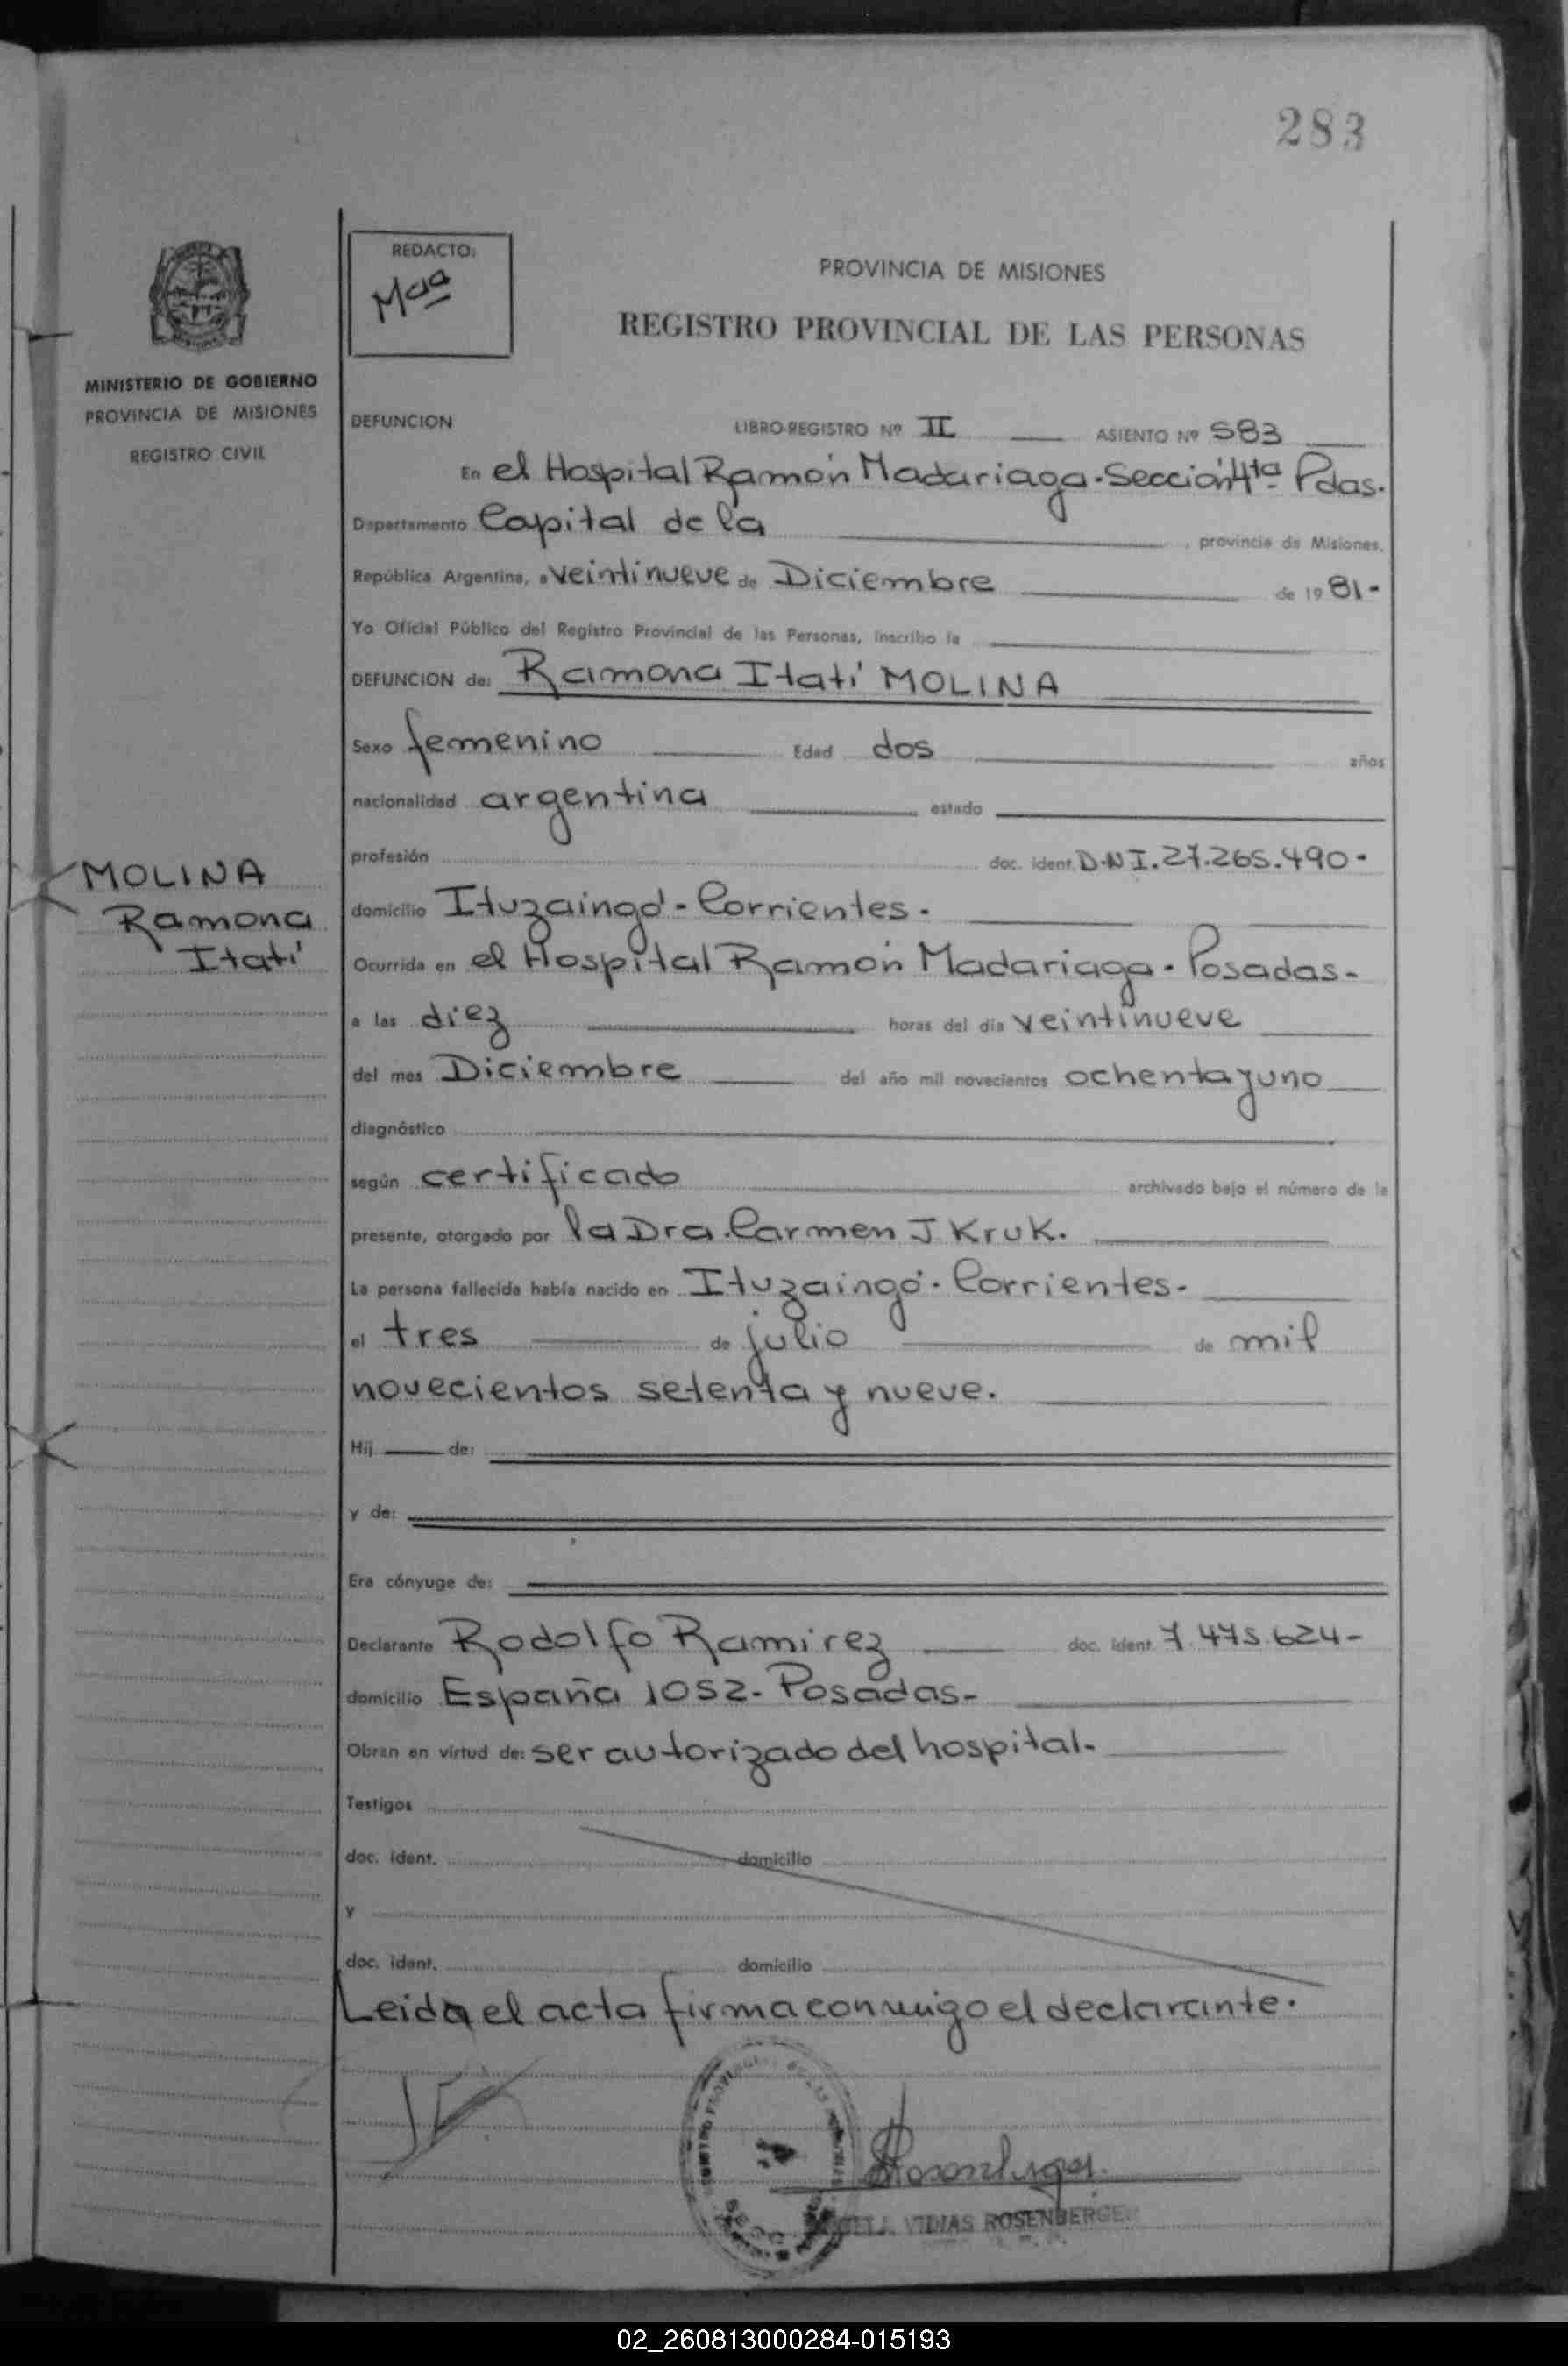 283
REDACTO:
Maa
PROVINCIA DE MISIONES
REGISTRO PROVINCIAL DE LAS PERSONAS
MINISTERIO DE GOBIERNO
PROVINCIA DE MISIONES
REGISTRO CIVIL
DEFUNCION LIBRO-REGISTRO Nº II ASIENTO Nº 583
En el Hospital Ramón Madariaga. Sección 4ta Pdas.
Departamento Capital de la , provincia de Misiones,
República Argentina, a veintinueve de Diciembre de 1981-
Yo Oficial Público del Registro Provincial de las Personas, inscribo la
DEFUNCION de: Ramona Itatí MOLINA
Sexo femenino Edad dos años
nacionalidad argentina estado
profesión doc. ident. D.N I. 27.265.490-
MOLINA
Ramona
Itatí
domicilio Ituzaingó - Corrientes.
Ocurrida en el Hospital Ramón Madariaga. Posadas-
a las diez horas del día veintinueve
del mes Diciembre del año mil novecientos ochenta y uno
diagnóstico
según certificado archivado bajo el número de la
presente, otorgado por la Dra. Carmen J Kruk.
La persona fallecida había nacido en Ituzaingó. Corrientes-
el tres de julio de mil
novecientos setenta y nueve.
Hij de:
y de:
Era cónyuge de:
Declarante Rodolfo Ramirez doc. ident. 7.475.624-
domicilio España 1052- Posadas-
Obran en virtud de: ser autorizado del hospital-
Testigos
doc. ident. domicilio
y
doc. ident. domicilio
Leida el acta firma conmigo el declarante.
VIDIAS ROSENBERGER
02_260813000284-015193